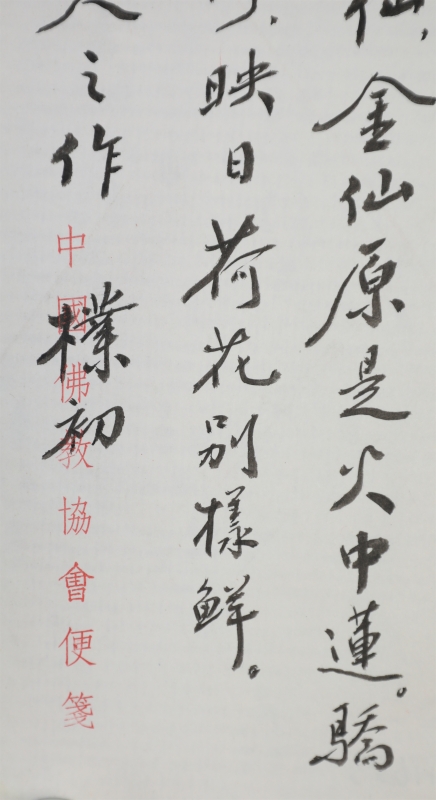 仙，金仙原是火中蓮。驕
映日荷花別樣鮮。
人之作
樸初
中國佛教協會便箋